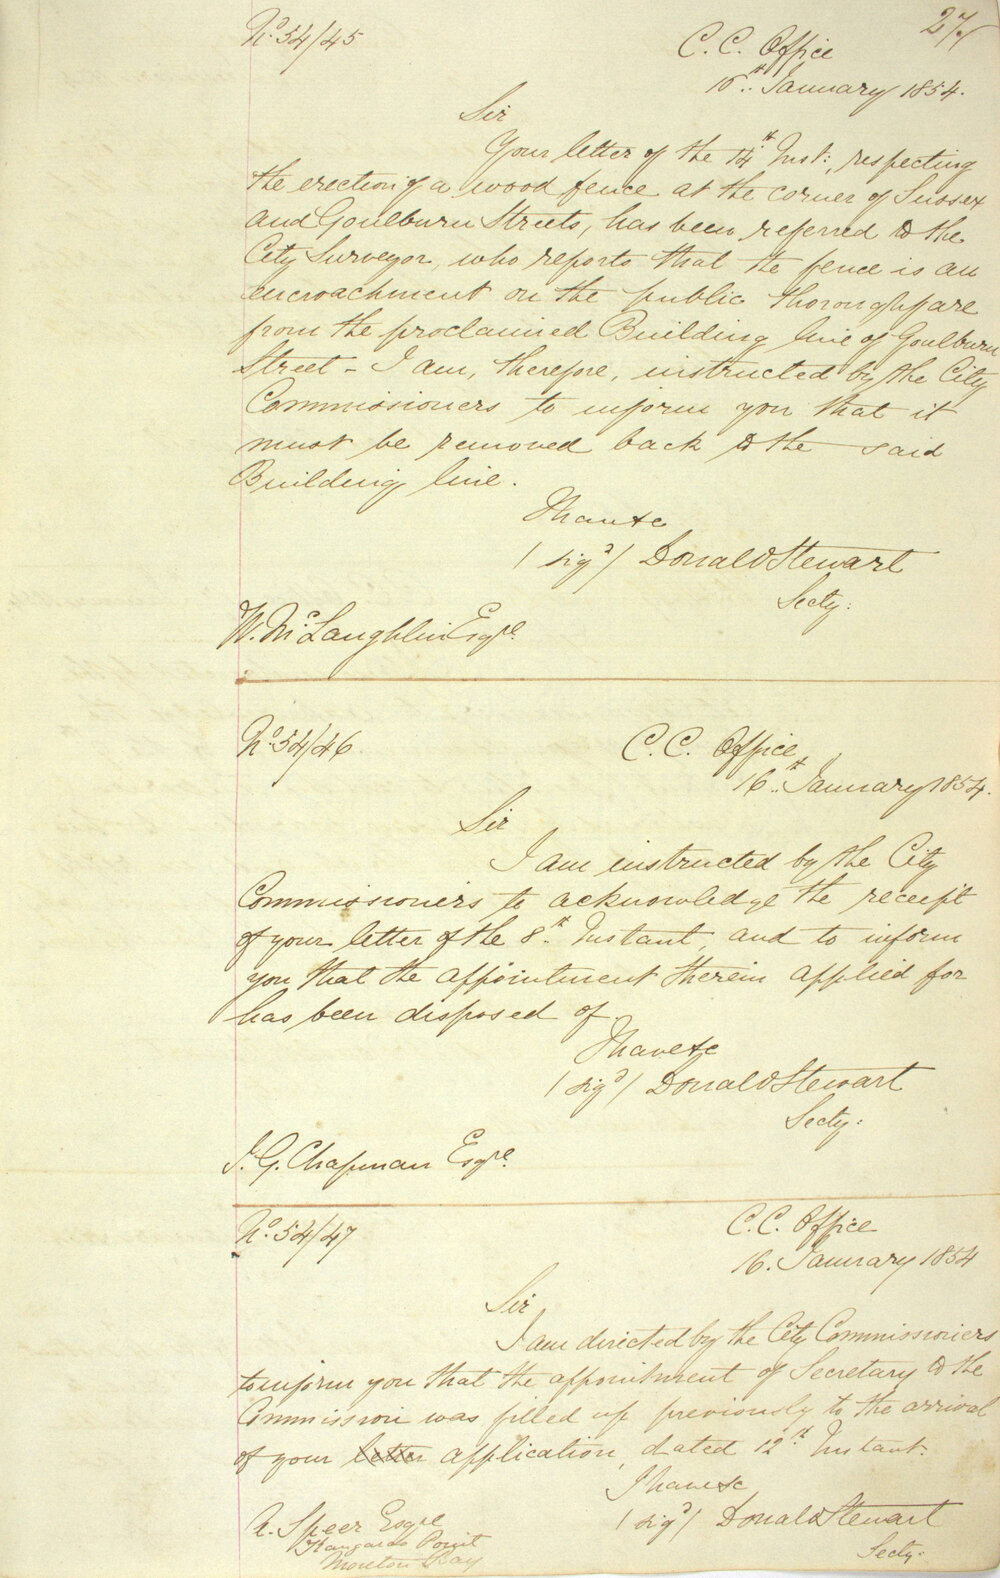 27
No. 54/45
C. C. Office
16th January 1854.
Sir
Your letter of the 14th Inst:, respecting
the erection of a wood fence at the corner of Sussex
and Goulburn Streets, has been referred to the
City Surveyor, who reports that the fence is an
encroachment on the public thoroughfare
from the proclaimed Building line of Goulburn
Street - I am, therefore, instructed by the City
Commissioners to inform you that it
must be removed back to the said
Building line.
I have &c
(sigd) Donald Stewart
Secty:
W. McLaughlin Esqre.
No. 54/46
C. C. Office,
16th January 1854.
Sir
I am instructed by the City
Commissioners to acknowledge the receipt
of your letter of the 8th Instant, and to inform
you that the appointment therein applied for
has been disposed of.
I have &c
(sigd) Donald Stewart
Secty:
J. G. Chapman Esqre.
No. 54/47
C. C. Office
16. January 1854
Sir
I am directed by the City Commissioners
to inform you that the appointment of Secretary to the
Commission was filled up previously to the arrival
of your letter application, dated 12th Instant.
I have &c
(sigd) Donald Stewart
Secty:
A. Speer Esqre
Kangaroo Point
Moreton Bay